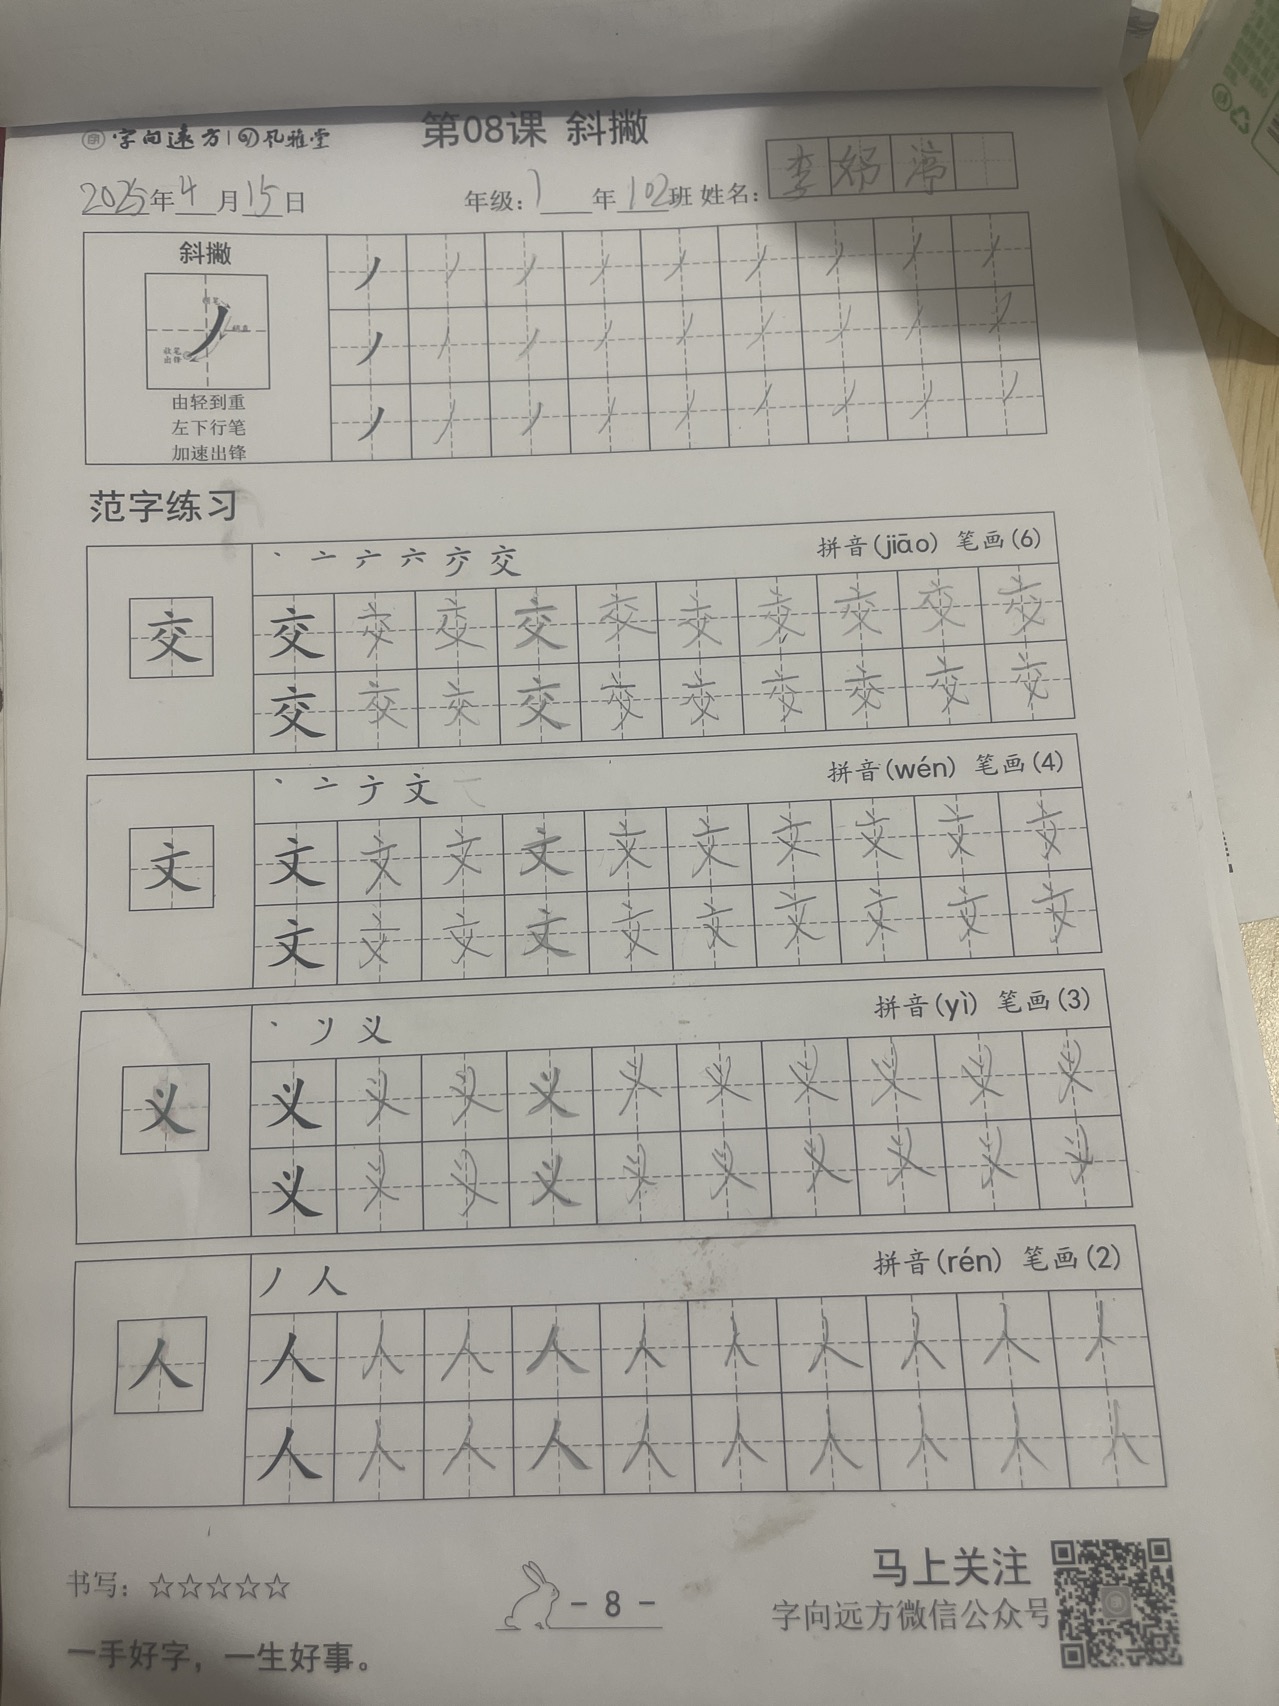 字向远方 | 孔雅堂
第08课 斜撇
2025年4月15日 年级：1年102班 姓名：李
斜撇
起笔
收笔
出锋
由轻到重
左下行笔
加速出锋
范字练习
拼音(jiāo) 笔画(6)
交
交 交 交 交 交 交 交 交 交 交
交 交 交 交 交 交 交 交 交 交
文 拼音(wén) 笔画(4)
文
文 文 文 文 文 文 文 文 文 文
文 文 文 文 文 文 文 文 文 文
义 拼音(yì) 笔画(3)
义
义 义 义 义 义 义 义 义 义 义
义 义 义 义 义 义 义 义 义 义
人 拼音(rén) 笔画(2)
人
人 人 人 人 人 人 人 人 人 人
人 人 人 人 人 人 人 人 人 人
书写：☆☆☆☆☆
- 8 -
马上关注
字向远方微信公众号
一手好字，一生好事。